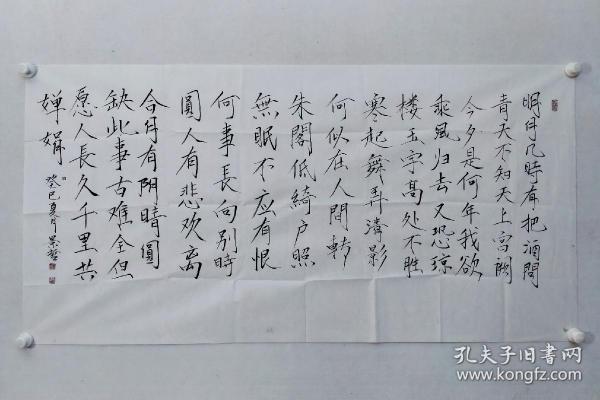 明月几時有把酒問
青天不知天上宮闕
今夕是何年我欲
乘風归去又恐琼
楼玉宇高处不胜
寒起舞弄清影
何似在人間轉
朱閣低綺户照
無眠不应有恨
何事長向别時
圓人有悲欢离
合月有阴晴圓
缺此事古难全但
愿人長久千里共
婵娟
癸巳夏月
孔夫子旧书网
www.kongfz.com